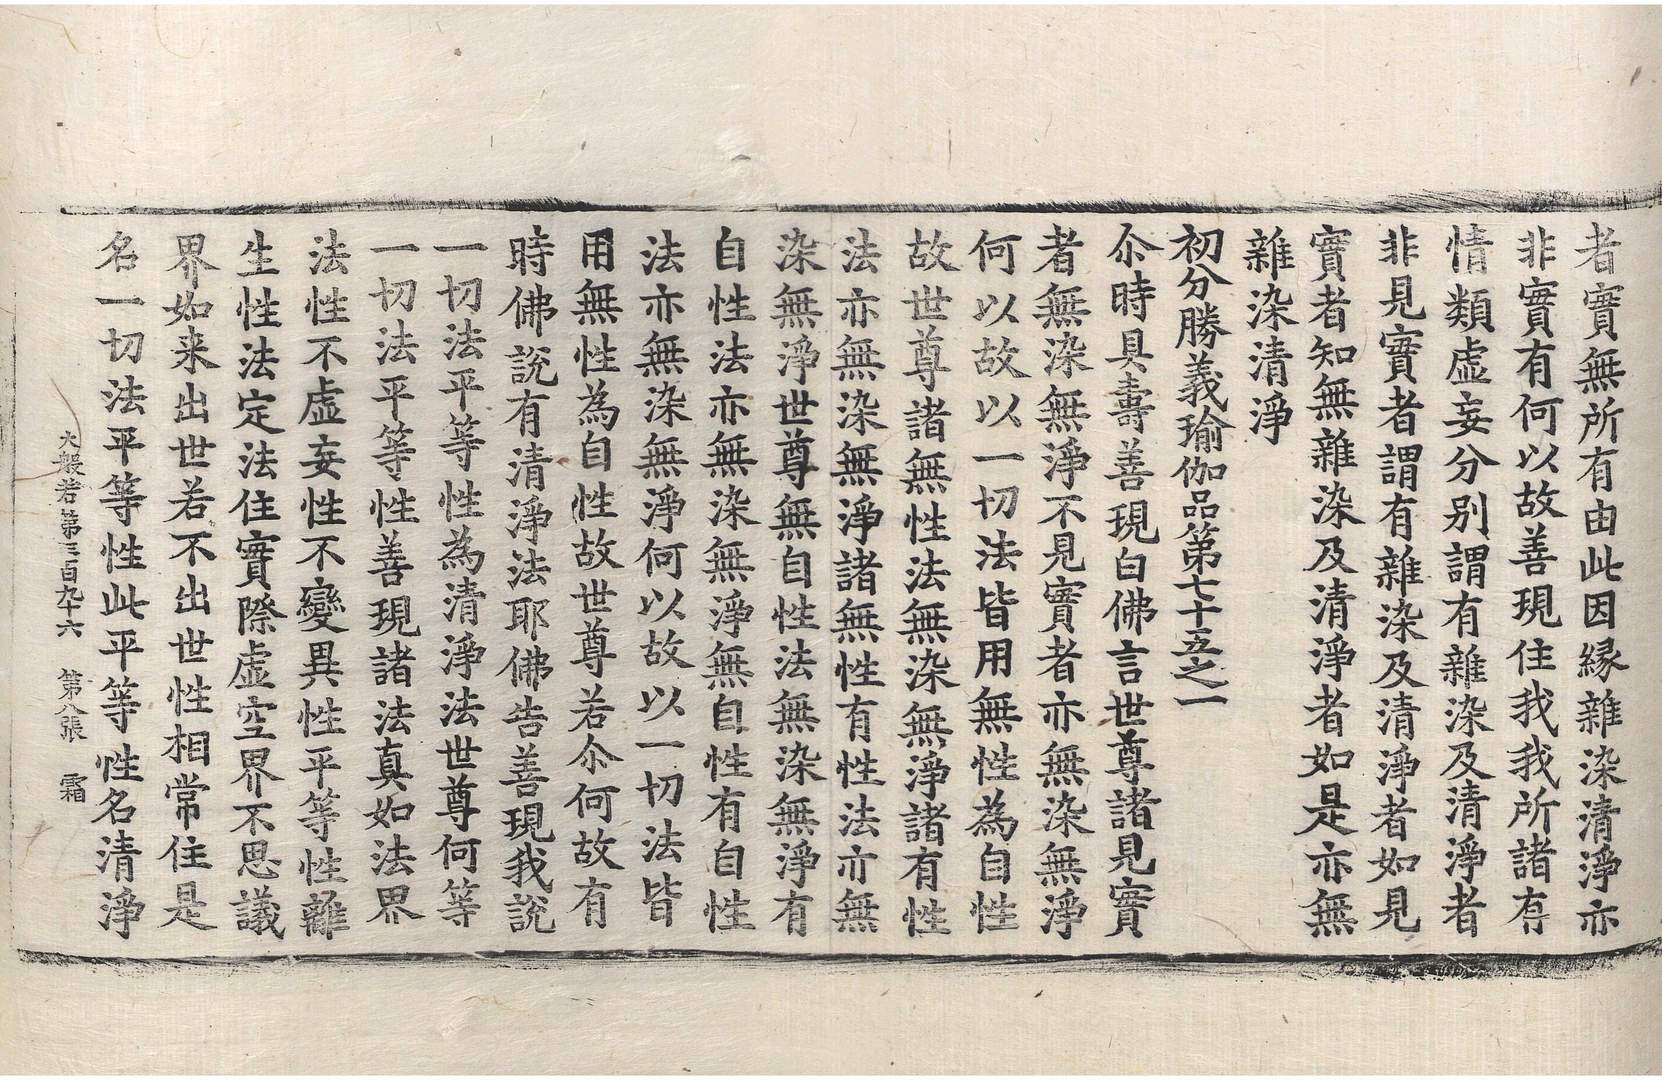 者實無所有由此因縁雜染清淨亦
非實有何以故善現住我我所諸有
情類虛妄分別謂有雜染及清淨者
非見實者謂有雜染及清淨者如見
實者知無雜染及清淨者如是亦無
雜染清淨
初分勝義瑜伽品第七十五之一
尒時具壽善現白佛言世尊諸見實
者無染無淨不見實者亦無染無淨
何以故以一切法皆用無性為自性
故世尊諸無性法無染無淨諸有性
法亦無染無淨諸無性有性法亦無
染無淨世尊無自性法無染無淨有
自性法亦無染無淨無自性有自性
法亦無染無淨何以故以一切法皆
用無性為自性故世尊若尒何故有
時佛說有清淨法耶佛告善現我說
一切法平等性為清淨法世尊何等
一切法平等性善現諸法真如法界
法性不虛妄性不變異性平等性離
生性法定法住實際虛空界不思議
界如来出世若不出世性相常住是
名一切法平等性此平等性名清淨
大般若第三百九十六 第八張 霜